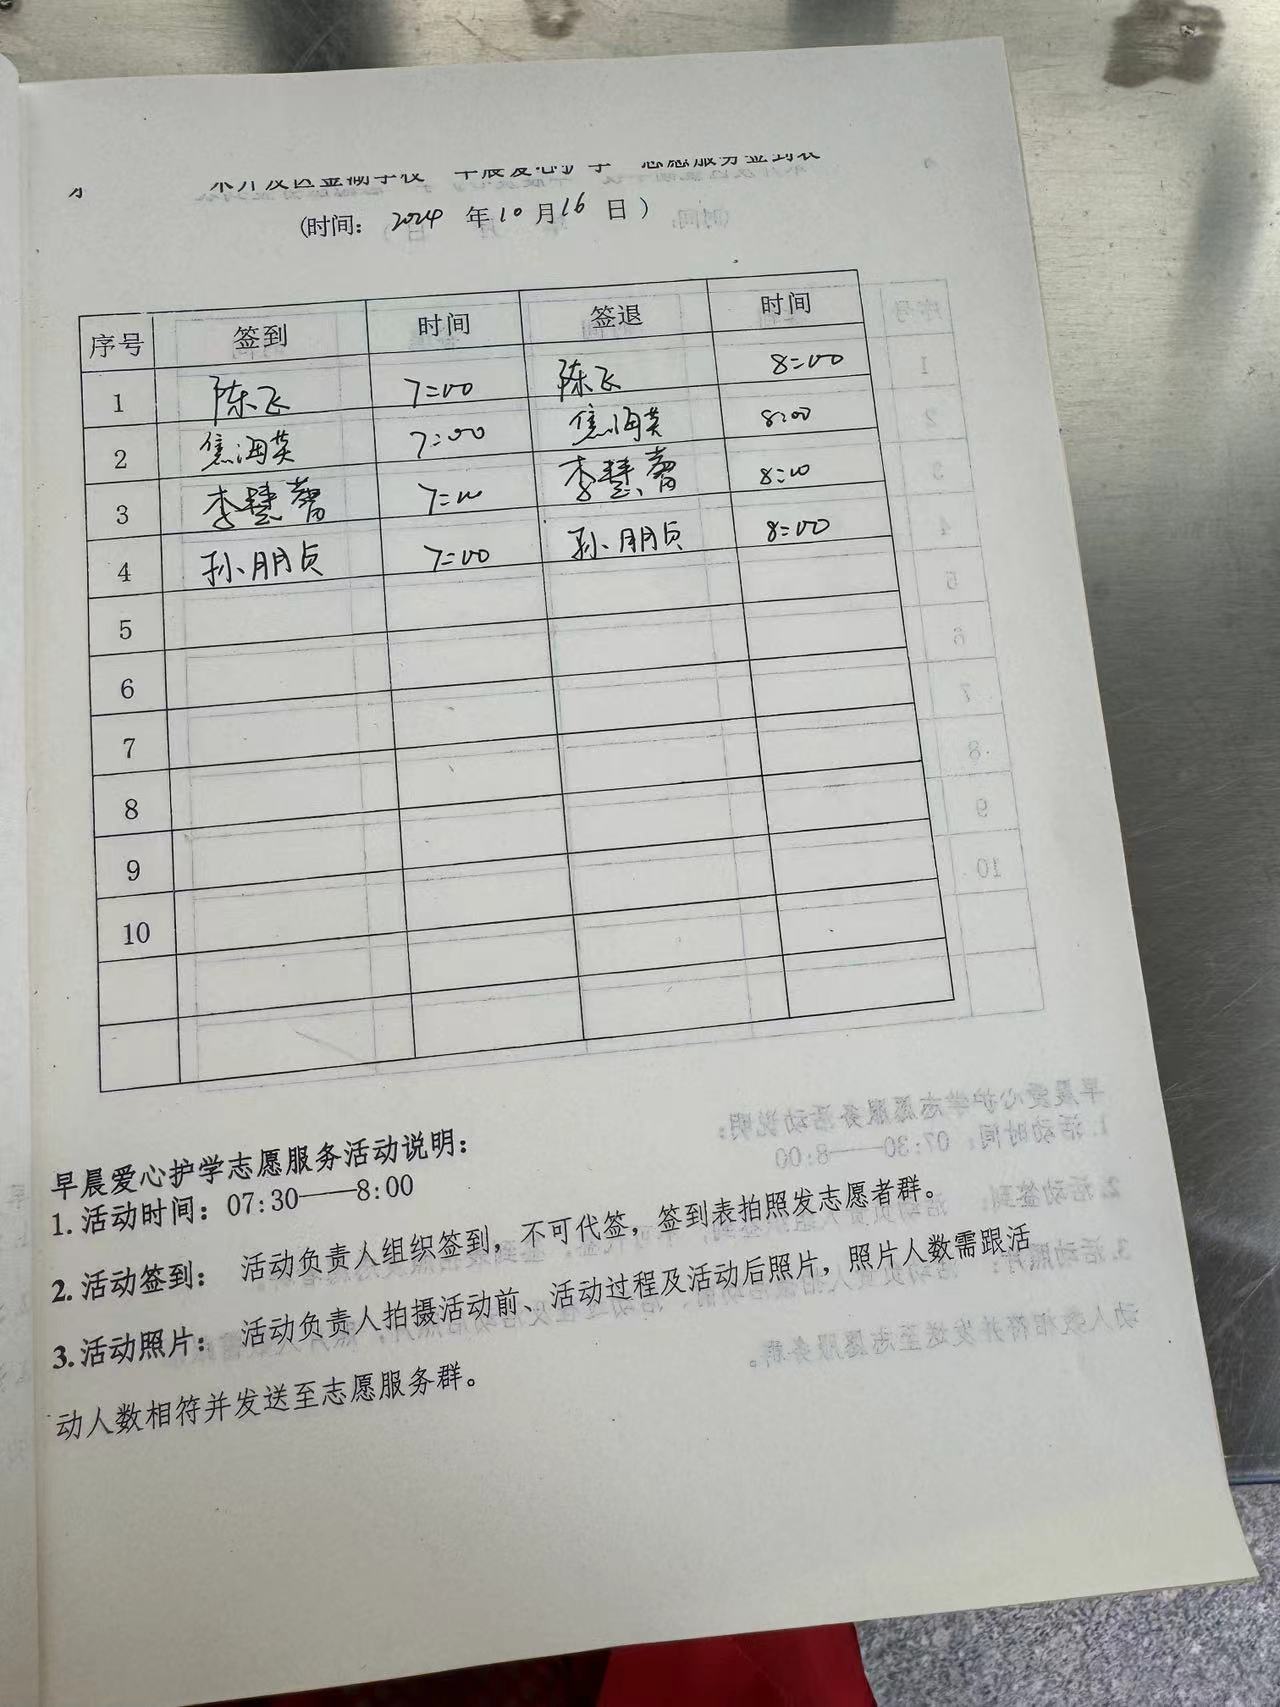 开发区金湖学校“早晨爱心护学”志愿服务签到表
(时间: 2024 年10月16 日)
序号 签到 时间 签退 时间
1 陈飞 7:00 陈飞 8:00
2 焦海英 7:00 焦海英 8:00
3 李慧 7:00 李慧 8:00
4 孙朋贞 7:00 孙朋贞 8:00
5
6
7
8
9
10
早晨爱心护学志愿服务活动说明:
1.活动时间: 07:30——8:00
2.活动签到: 活动负责人组织签到，不可代签，签到表拍照发志愿者群。
3.活动照片: 活动负责人拍摄活动前、活动过程及活动后照片，照片人数需跟活
动人数相符并发送至志愿服务群。